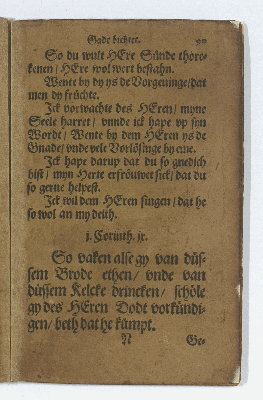 Gade bichtet. 97
So du wult HEre Sünde thore-
kenen/ HEre wol wert bestahn.
Wente by dy ys de Vorgevinge/dat
men dy früchte.
Ick vorwachte des HEren/ myne
Seele harret/ vnde ick hape vp syn
Wordt/ Wente by dem HEren ys de
Gnade/ vnde vele Vorlösinge by eme.
Ick hape darup dat du so gnedich
bist/ myn Herte erfröuwet sick/ dat du
so gerne helpest.
Ick wil dem HEren singen/dat he
so wol an my deith.
j. Corinth. xj.
So vaken alse gy van düs-
sem Brode ethen/ vnde van
düssem Kelcke drincken/ schöle
gy des HEren Dodt vorkündi-
gen/ beth dat he kümpt.
N Ge-